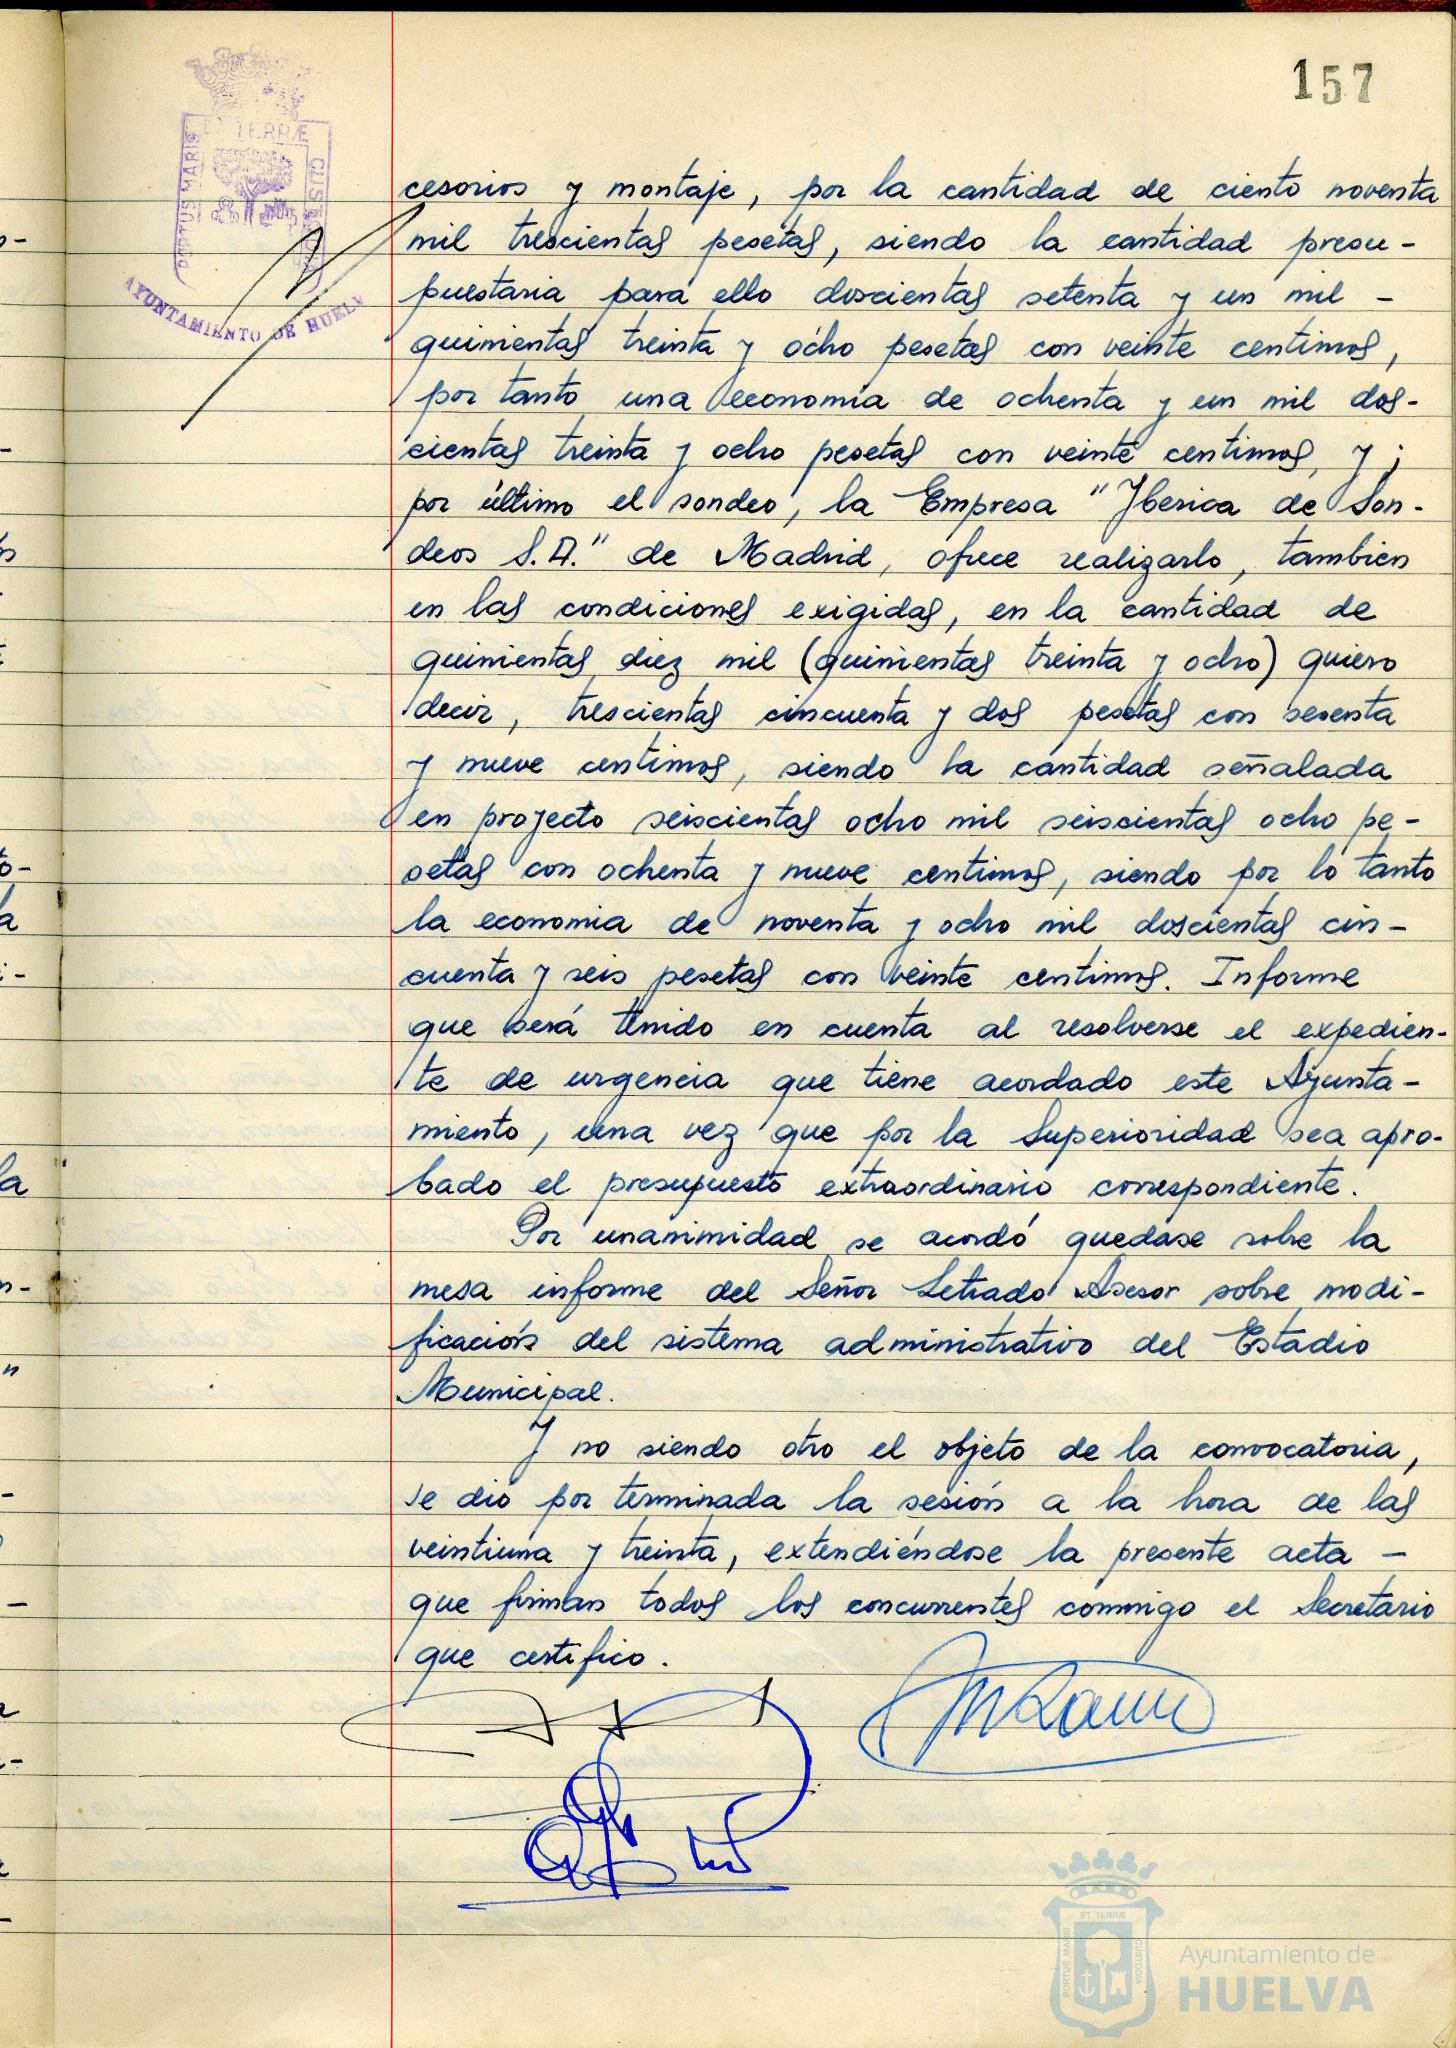 157
ET TERRÆ
PORTUS MARIS
CUSTODIA
AYUNTAMIENTO DE HUELV
cesorios y montaje, por la cantidad de ciento noventa
mil trescientas pesetas, siendo la cantidad presu-
puestaria para ello doscientas setenta y un mil -
quinientas treinta y ocho pesetas con veinte centimos,
por tanto una economia de ochenta y un mil dos-
cientas treinta y ocho pesetas con veinte centimos, y ;
por último el sondeo, la Empresa "Iberica de Son-
deos S.A." de Madrid, ofrece realizarlo, tambien
en las condiciones exigidas, en la cantidad de
quinientas diez mil (quinientas treinta y ocho) quiero
decir, trescientas cincuenta y dos pesetas con sesenta
y nueve centimos, siendo la cantidad señalada
en proyecto seiscientas ocho mil seiscientas ocho pe-
setas con ochenta y nueve centimos, siendo por lo tanto
la economia de noventa y ocho mil doscientas cin-
cuenta y seis pesetas con veinte centimos. Informe
que será tenido en cuenta al resolverse el expedien-
te de urgencia que tiene acordado este Ayunta-
miento, una vez que por la Superioridad sea apro-
bado el presupuesto extraordinario correspondiente.
Por unanimidad se acordó quedase sobre la
mesa informe del Señor Letrado Asesor sobre modi-
ficación del sistema administrativo del Estadio
Municipal.
Y no siendo otro el objeto de la convocatoria,
se dió por terminada la sesión a la hora de las
veintiuna y treinta, extendiéndose la presente acta -
que firman todos los concurrentes conmigo el Secretario
que certifico.
ET TERRÆ
PORTUS MARIS
CUSTODIA
Ayuntamiento de
HUELVA